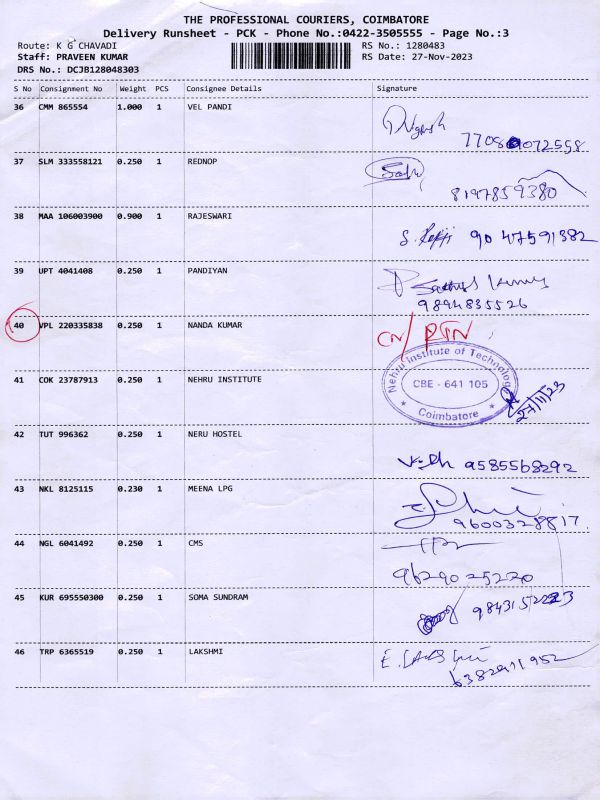 THE PROFESSIONAL COURIERS, COIMBATORE
Delivery Runsheet - PCK - Phone No.:0422-3505555 - Page No.:3
Route: K G CHAVADI RS No.: 1280483
Staff: PRAVEEN KUMAR RS Date: 27-Nov-2023
DRS No.: DCJB128048303
S No Consignment No Weight PCS Consignee Details Signature
36 CMM 865554 1.000 1 VEL PANDI
37 SLM 333558121 0.250 1 REDNOP
8197859380
38 MAA 106003900 0.900 1 RAJESWARI
9047591382
39 UPT 4041408 0.250 1 PANDIYAN
9894835526
40 VPL 220335838 0.250 1 NANDA KUMAR CN/RTN
41 COK 23787913 0.250 1 NEHRU INSTITUTE
Nehru Institute of Technology
CBE - 641 105
Coimbatore
27/11/23
42 TUT 996362 0.250 1 NERU HOSTEL
9585568292
43 NKL 8125115 0.230 1 MEENA LPG
9600328817
44 NGL 6041492 0.250 1 CMS
9629025220
45 KUR 695550300 0.250 1 SOMA SUNDRAM
46 TRP 6365519 0.250 1 LAKSHMI
6382911952